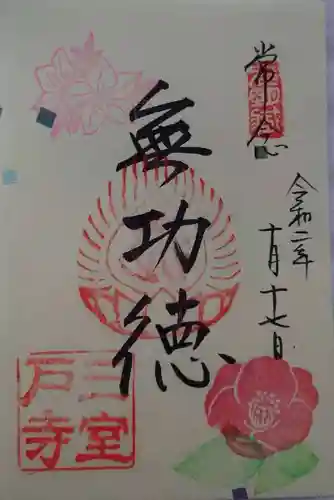 常念
令和二年
十月十七日
無功徳
三室
戸寺